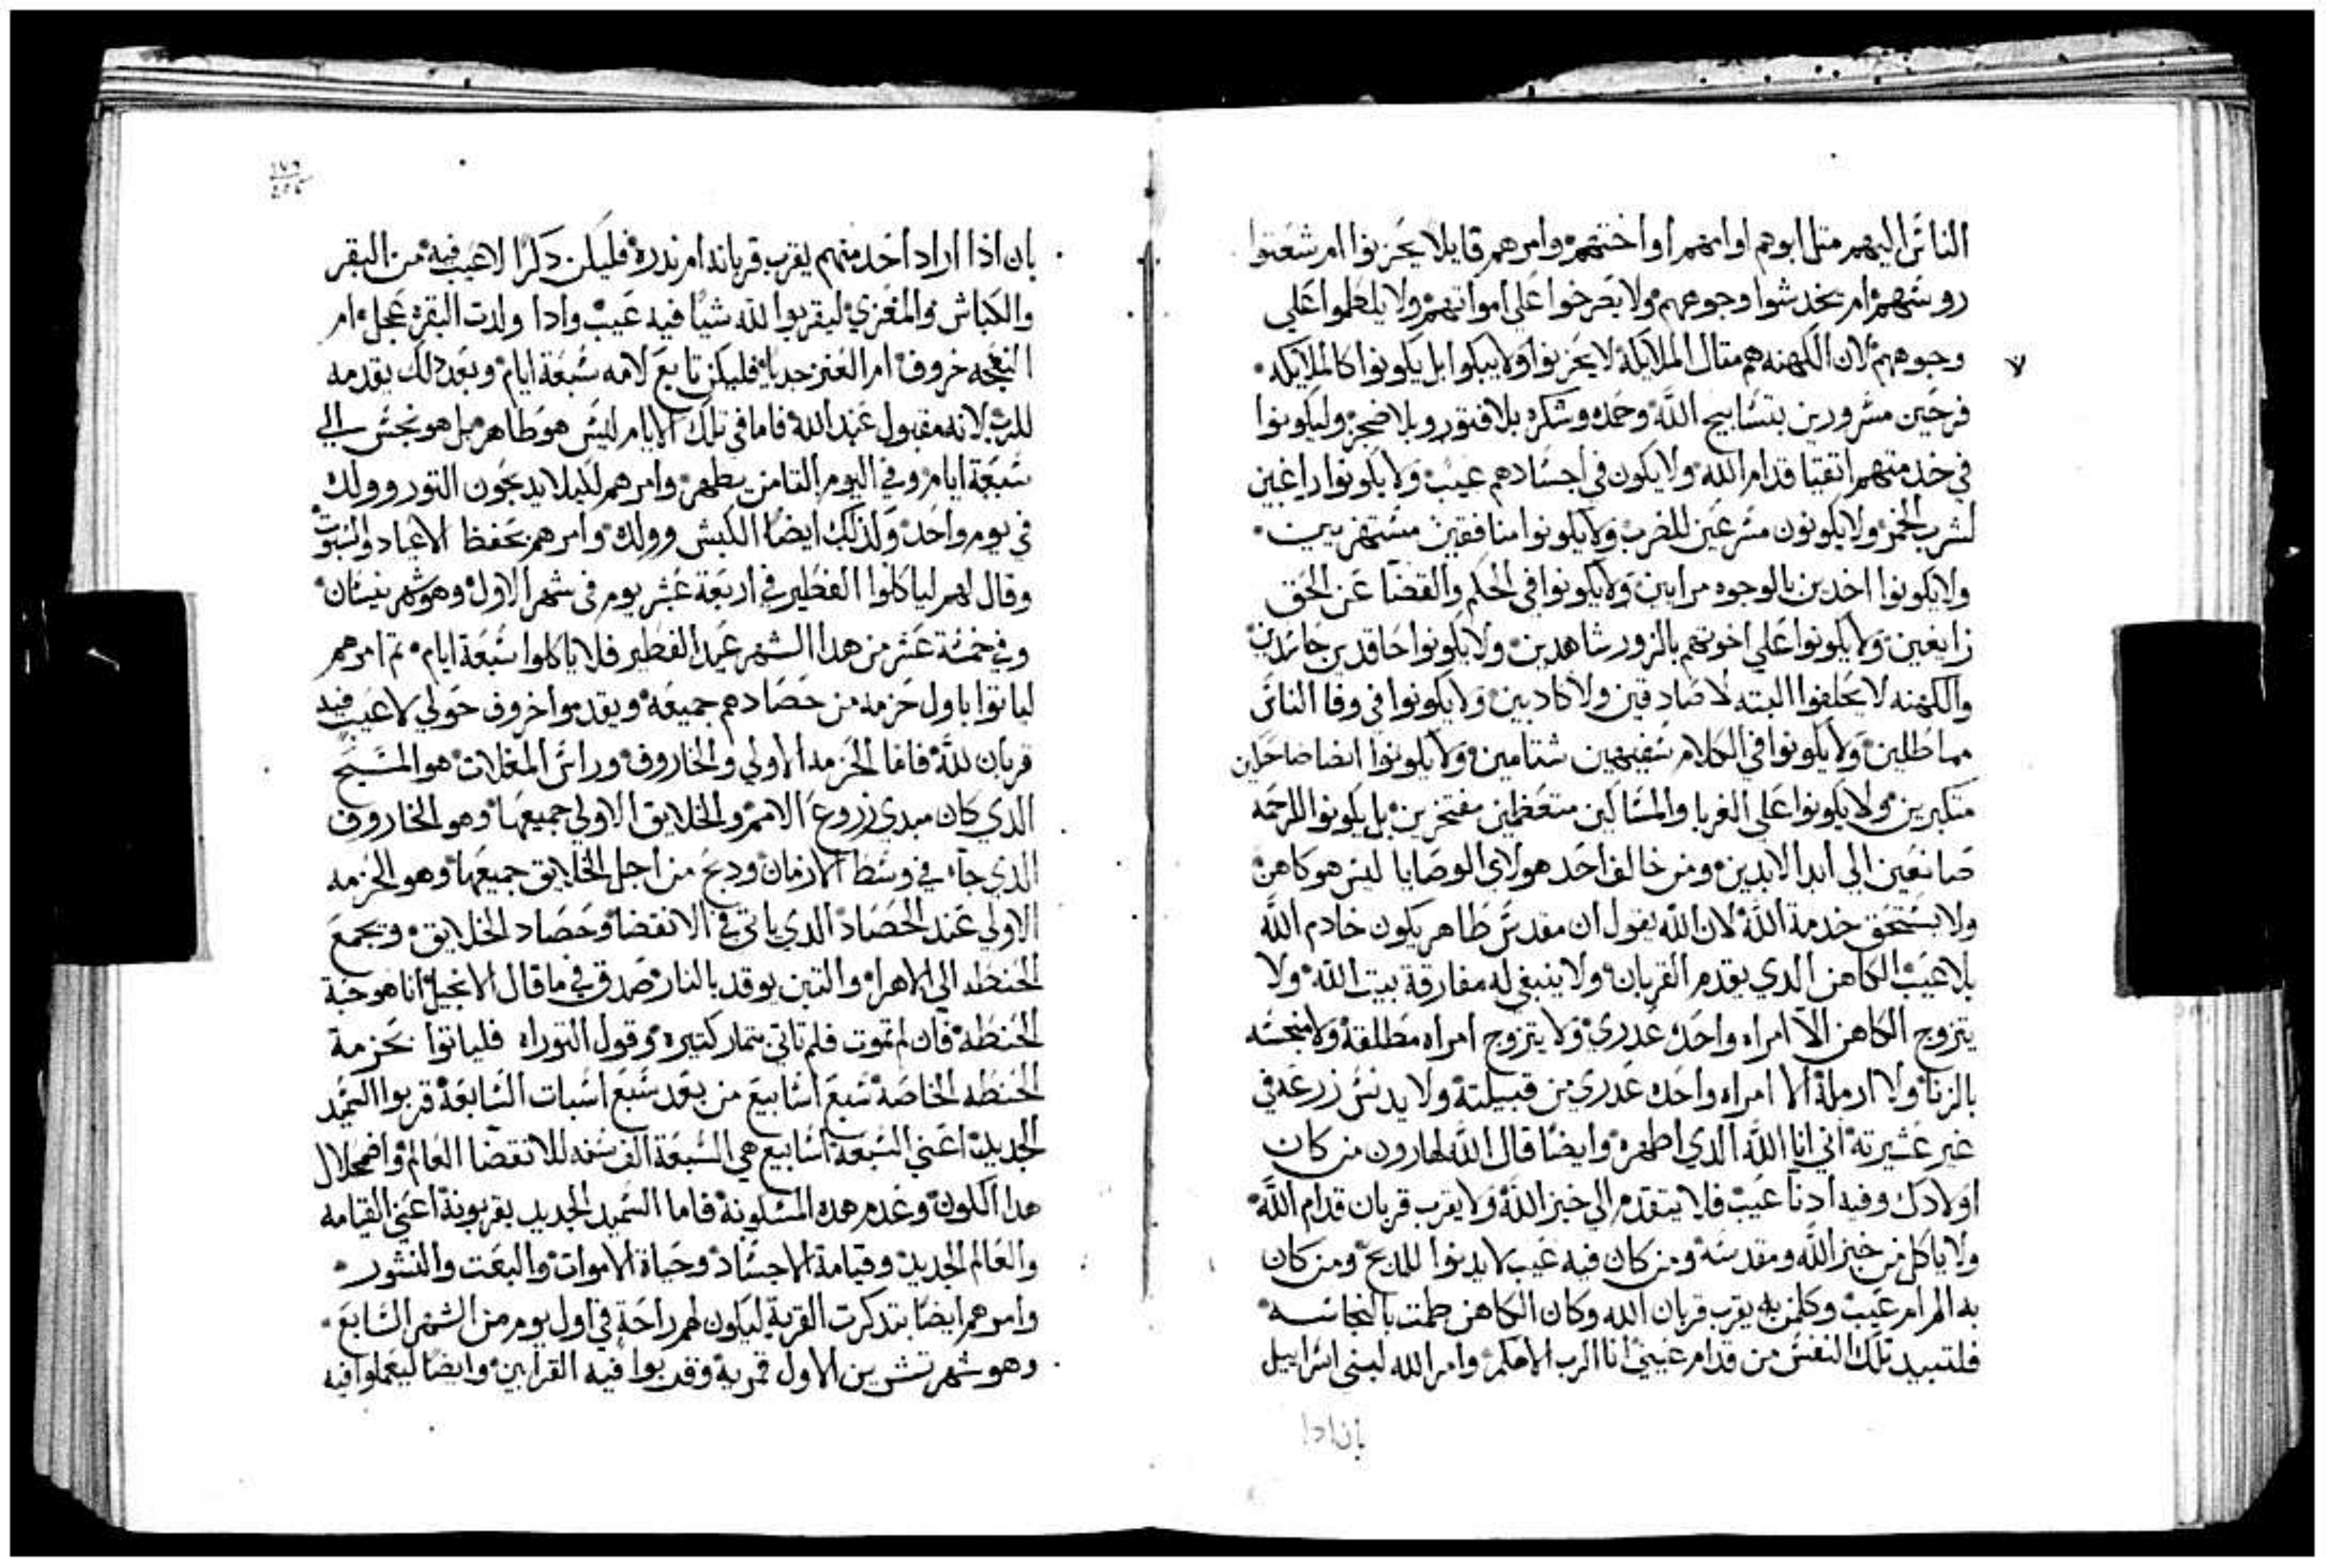 الناس اليهم متل ابوهم او امهم او اختهم وامرهم قايلا يحزنوا ام شعتوا
روسهم ام يخدشوا وجوههم ولا يصرخوا علي امواتهم ولا يلطموا علي
وجوههم لان الكهنه هم متال الملايكة لا يحزنوا ولا يبكوا بل يكونوا كالملايكه
٧
فرحين مسرورين بتسابيح الله وحمده وشكره بلا فتور وبلا ضجر وليكونوا
في خدمتهم اتقيا قدام الله ولا يكون في اجسادهم عيب ولا يكونوا راغبين
لشرب الخمر ولا يكونون مسرعين للضرب ولا يكونوا منافقين مستهزيين
ولا يكونوا اخدين بالوجوه مرايين ولا يكونوا في الحكم والقضا عن الحق
زايغين ولا يكونوا علي اخوتهم بالزور شاهدين ولا يكونوا حاقدين حاسدين
والكهنه لا يحلفوا البته لا صادقين ولا كادبين ولا يكونوا في وفا الناس
مماطلين ولا يكونوا في الكلام سفيهين شتامين ولا يكونوا ايضا
متكبرين ولا يكونوا علي الغربا والمساكين متعظمين مفتخرين بل يكونوا للرحمه
صانعين الي ابد الابدين ومن خالف احد هولاي الوصايا ليس هو كاهن
ولا يستحق خدمة الله لان الله يقول ان مقدس طاهر يكون خادم الله
بلا عيب الكاهن الدي يقدم القربان ولا ينبغي له مفارقة بيت الله ولا
يتزوج الكاهن الا امراه واحده عدري ولا يتزوج امراه مطلقة ولا منجسه
بالزنا ولا ارملة الا امراه واحده عدري من قبيلته ولا يدنس زرعه في
غير عشيرته اني انا الله الدي اطهره وايضا قال الله لهارون من كان
اولادك وفيه ادنا عيب فلا يتقدم الي خبز الله ولا يقرب قربان قدام الله
ولا ياكل من خبز الله ومقدسه ومن كان فيه عيب لا يدنوا للمدبح ومن كان
به الم ام عيب وكلمن به يقرب قربان الله وكان الكاهن طمت بالنجاسه
فلتبيد تلك النفس من قدام عيني انا الرب الاهكم وامر الله لبني اسراييل
بان ادا
١٧٦
بان اذا اراد احد منهم يقرب قربانه ام ندره فليكن دكرا لا عيب فيه من البقر
والكباش والمعزي ليقربوا لله شيا فيه عيب وادا ولدت البقره عجل ام
النعجه خروف ام العنز جديا فليكن تابع لامه سبعة ايام وبعد دلك يقدمه
للرب لانه مقبول عند الله فاما في تلك الايام ليس هو طاهر بل هو نجس الي
سبعة ايام وفي اليوم التامن يطهر وامرهم لكيلا يدبحون التور وولده
في يوم واحد ولذلك ايضا الكبش وولده وامرهم بحفظ الاعياد والسبوت
وقال لهم لياكلوا الفطير في اربعة عشر يوم في شهر الاول وهو شهر نيسان
وفي خمسة عشر من هدا الشهر عيد الفطير فلا ياكلوا سبعة ايام تم امرهم
لياتوا باول حزمه من حصادهم جميعه ويقدموا خروف حولي لا عيب فيه
قربان لله فاما الحزمه الاولي والخاروف وراس المغلات هو المسيح
الدي كان مبدي زروع الامم والخلايق الاولي جميعها وهو الخاروف
الدي جاء في وسط الازمان ودبح من اجل الخلايق جميعها وهو الحزمه
الاولي عند الحصاد الدي ياتي في الانقضا وحصاد الخلايق ويجمع
الحنطه الي الاهرا والتبن يوقد بالنار صدق في ما قال الانجيل انا هو حبة
الحنطه فان لم تموت فلم تاتي بتمار كتيره وقول التوراه فلياتوا بحزمة
الحنطه الخاصة سبع اسابيع من بعد سبع اسبات السابعة قربوا السميد
الجديد اعني السبعة اسابيع هي السبعة الف سنه للانقضا العالم واضمحلال
هدا الكون وعدم هده المسكونة فاما السميد الجديد يقربونه اعني القيامه
والعالم الجديد وقيامة الاجساد وحياة الاموات والبعت والنشور
وامرهم ايضا بتدكرت القرية ليكون لهم راحة في اول يوم من الشهر السابع
وهو شهر تشرين الاول قمرية وقدبوا فيه القرابين وايضا ليعملوا فيه